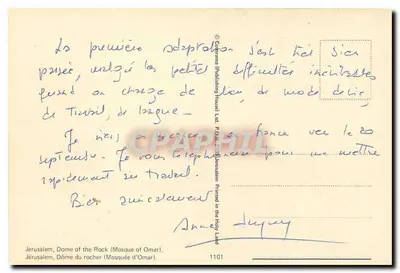 La première adaptation s'est très bien
passée, malgré les petites difficultés inévitables
quand on change de lieu, de mode de vie,
de travail, de langue.
Je en France vers le 20
septembre. Je vous téléphonerai pour me mettre
rapidement au travail.
Bien amicalement
Anne
Jerusalem, Dome of the Rock (Mosque of Omar).
Jérusalem, Dôme du rocher (Mosquée d'Omar).
1101
© Palphot (Publishing House) Ltd. P.O.B. Jerusalem Printed in the Holy Land
CPAPHIL